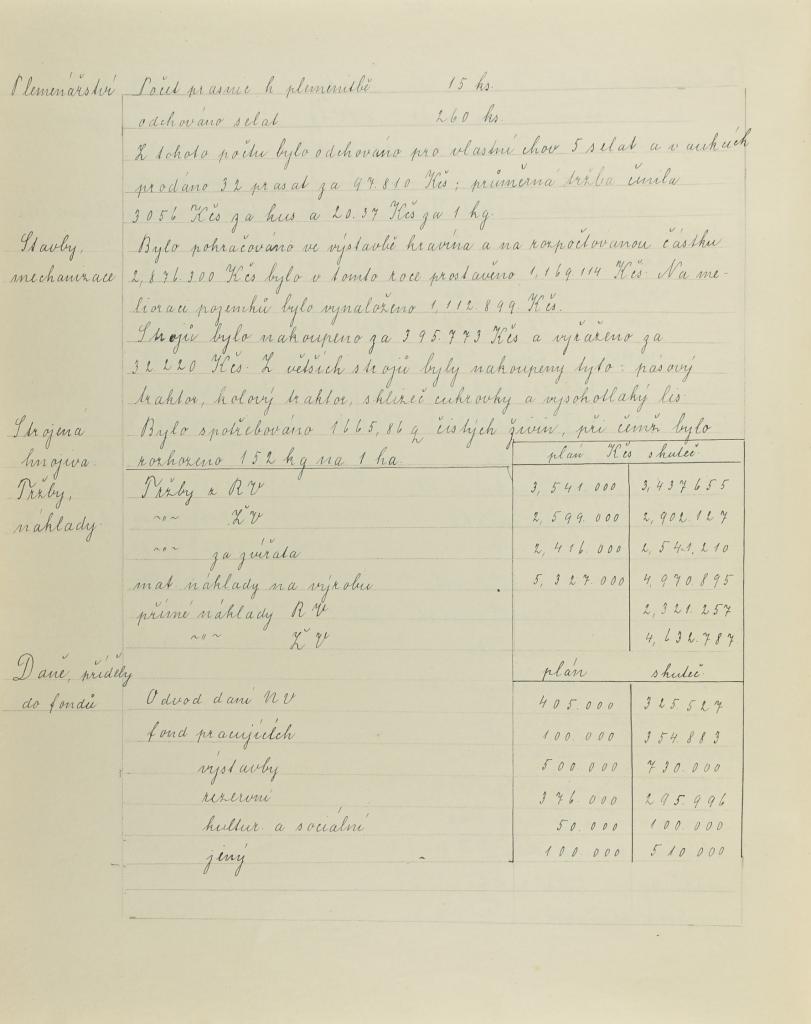 Plemenářství Počet prasnic k plemenitbě 15 ks.
odchováno selat 260 ks.
Z tohoto počtu bylo odchováno pro vlastní chov 5 selat a v aukcích
prodáno 32 prasat za 97.810 Kčs; průměrná tržba činila
3056 Kčs za kus a 20.37 Kčs za 1 kg.
Stavby, Bylo pokračováno ve výstavbě kravína a na rozpočtovanou částku
mechanizace 2,876.300 Kčs bylo v tomto roce prostavěno 1,169.114 Kčs. Na me-
liorace pozemků bylo vynaloženo 1,112.899 Kčs.
Strojů bylo nakoupeno za 395.773 Kčs a vyřazeno za
32220 Kčs. Z větších strojů byly nakoupeny tyto: pásový
traktor, kolový traktor, sklizeč cukrovky a vysokotlaký lis
Strojená Bylo spotřebováno 1665,86 q čistých živin, při čemž bylo
hnojiva rozhozeno 152 kg na 1 ha. plán Kčs skuteč.
Tržby, Tržby z RV 3,541.000 3,437655
náklady. -"- ŽV 2,599.000 2,902.127
-"- za zvířata 2,416.000 2,541,210
mat náklady na výrobu 5,327.000 4,970.895
přímé náklady RV 2,321.257
-"- ŽV 4,632.787
Daně, příděly plán skuteč.
do fondů Odvod daní NV 405.000 325.527
fond pracujících 100.000 354.883
výstavby 500.000 730.000
rezervní 376.000 295.996
kultur. a sociální 50.000 100.000
jený 100.000 510000